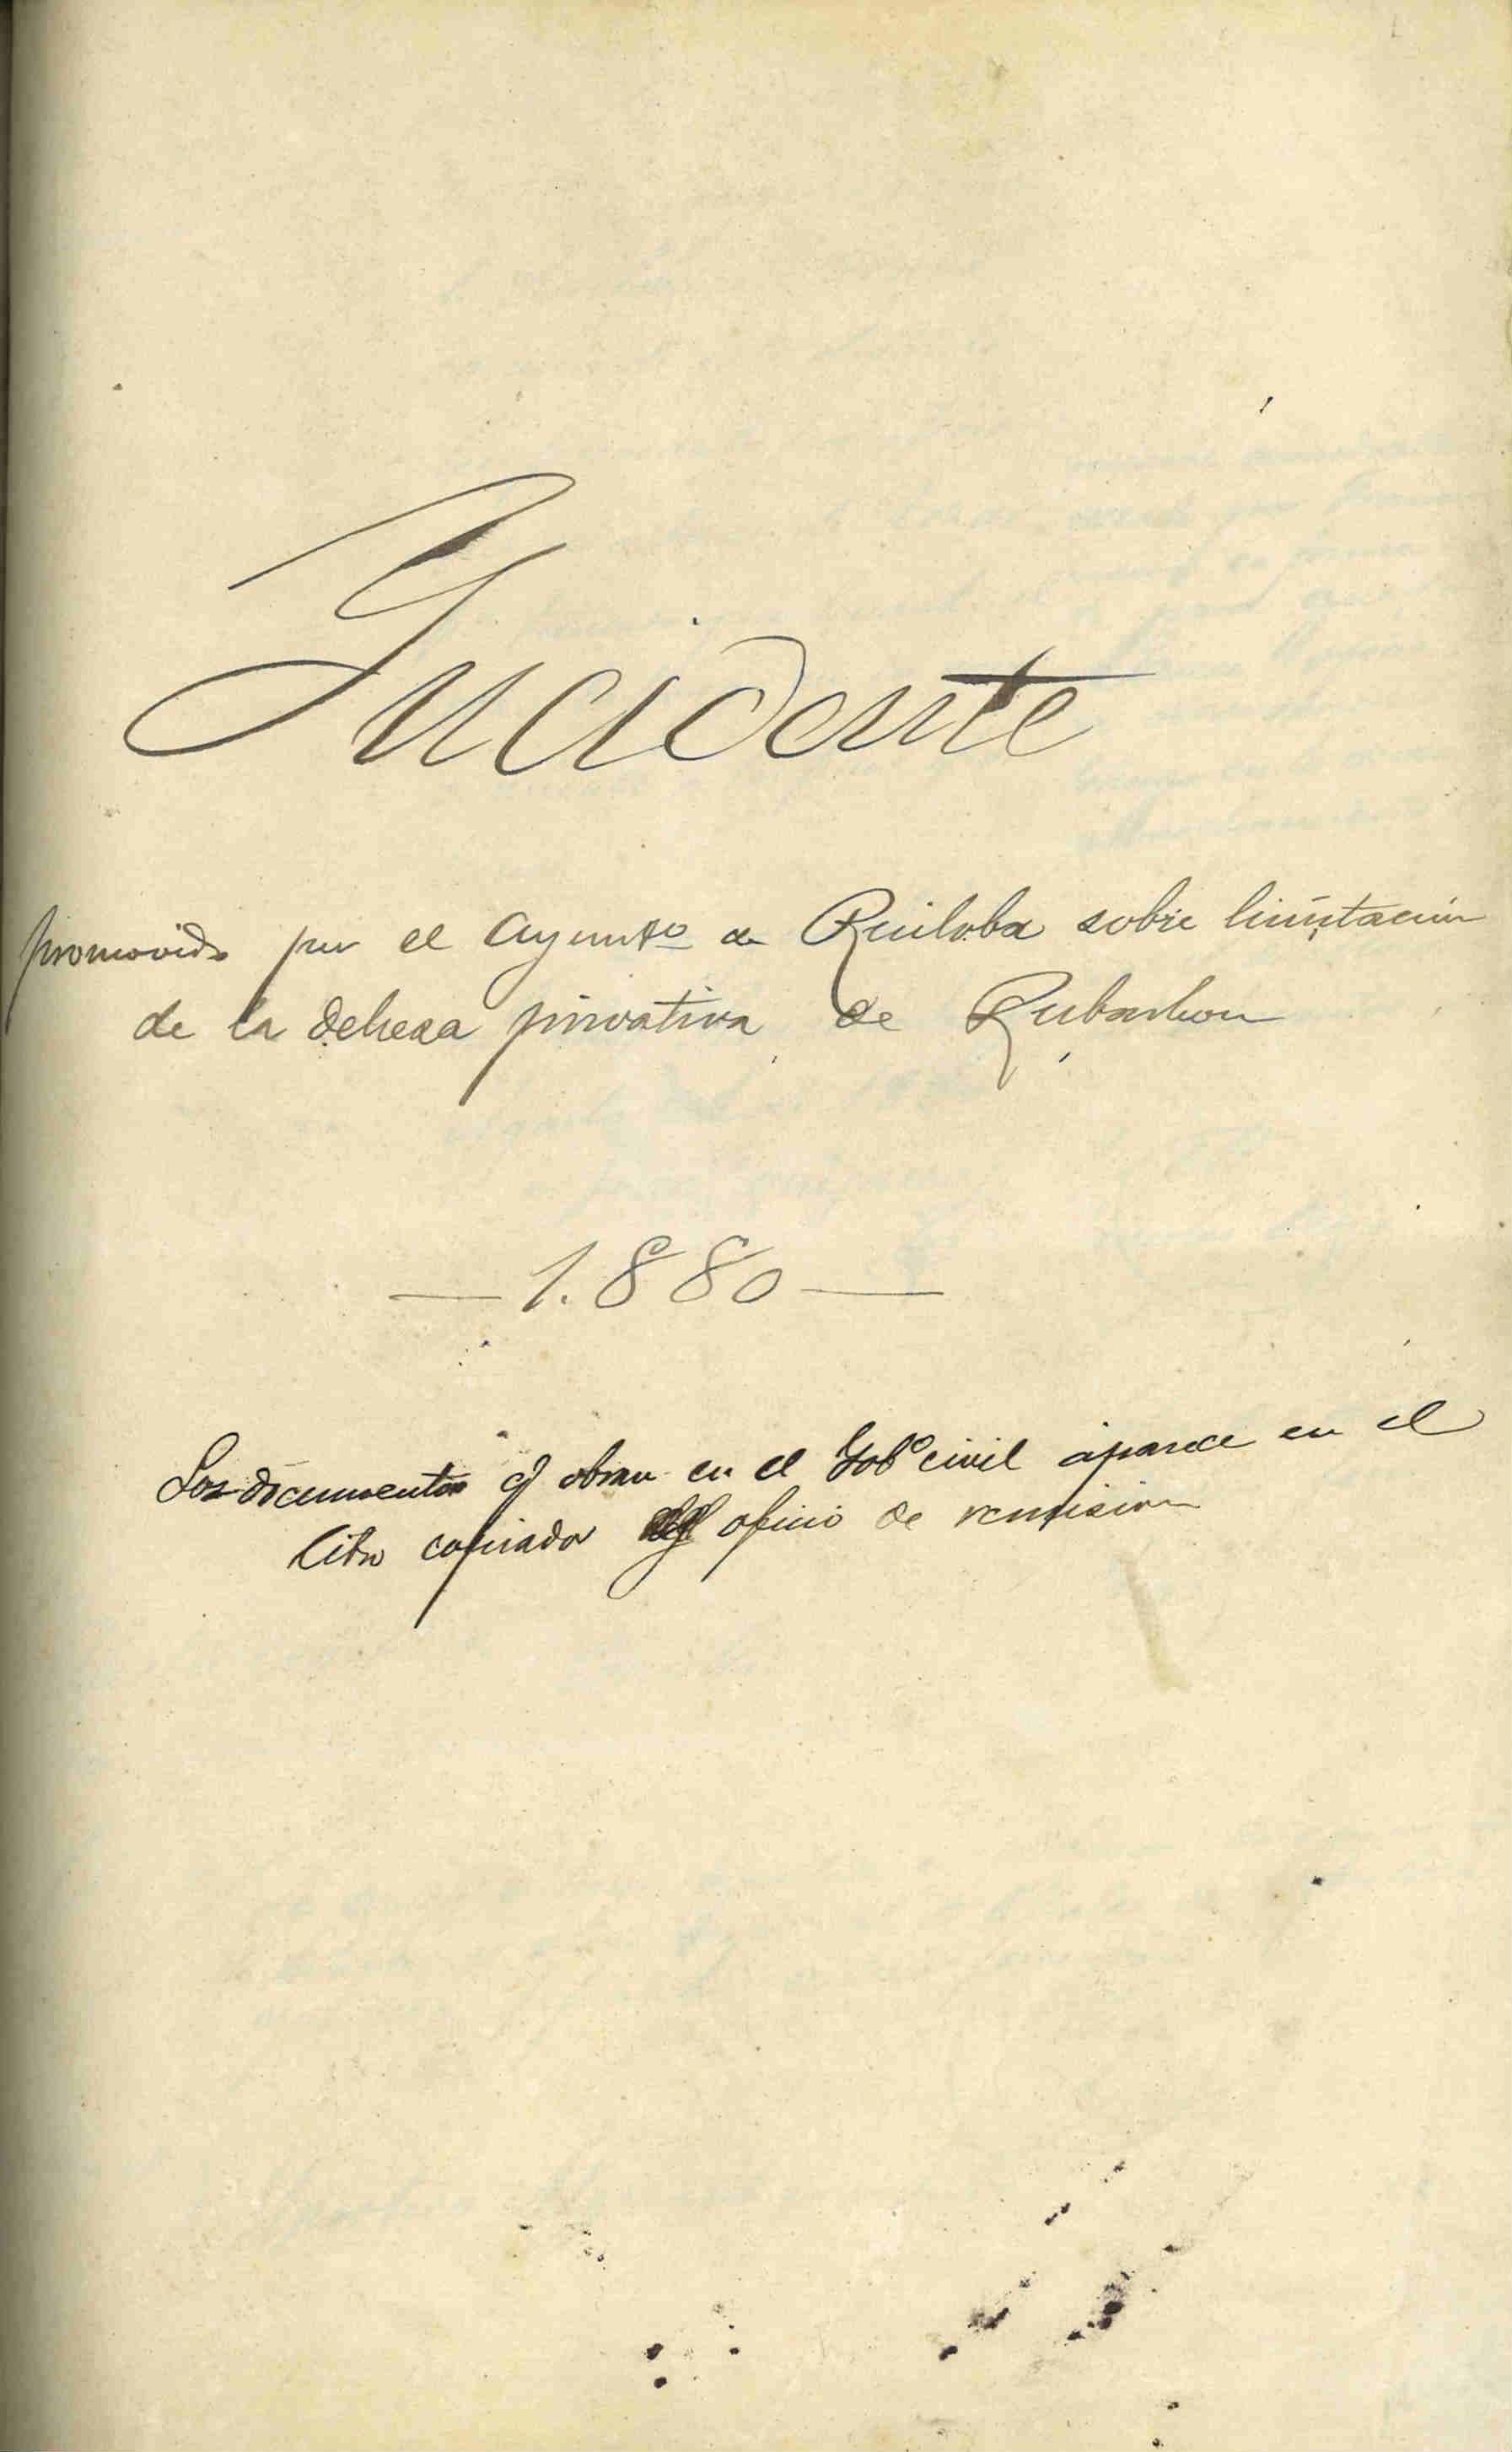 Incidente
promovido por el Ayuntº de Ruiloba sobre limitación
de la dehesa privativa de Rubarbon
— 1.880 —
Los documentos q obran en el Gobº civil aparece en el
libro copiador oficio de remision